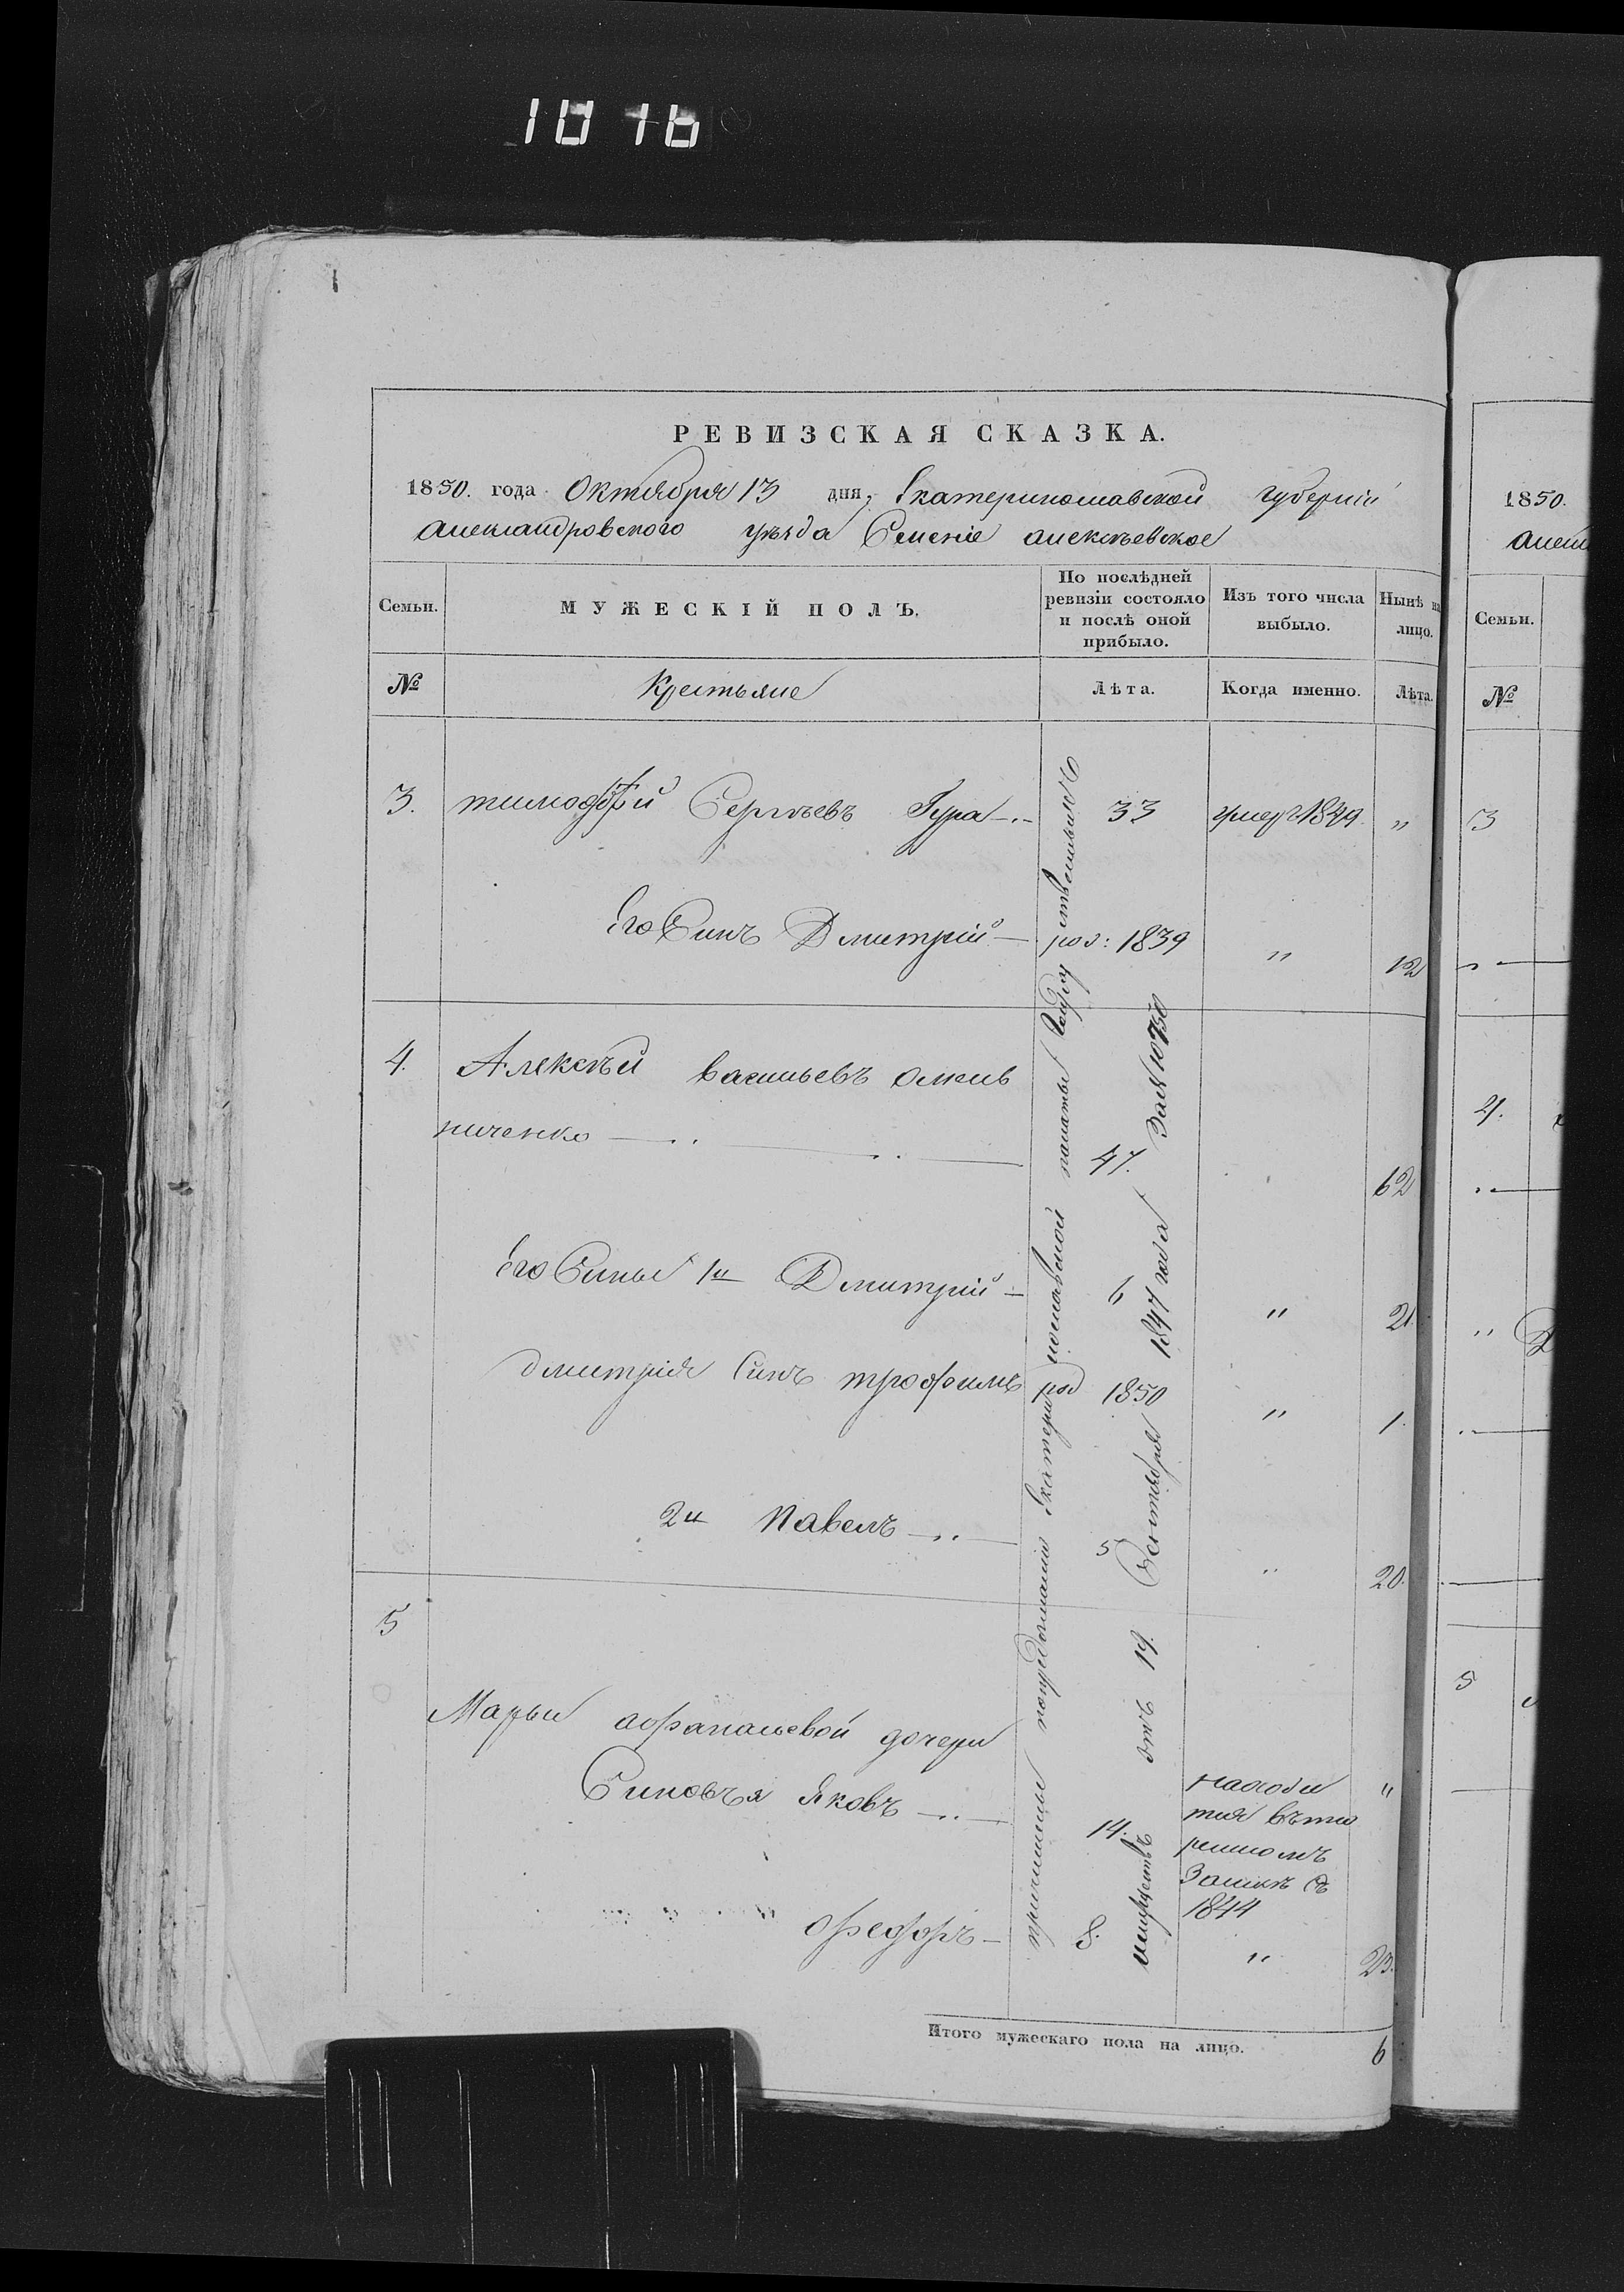 1076
РЕВИЗСКАЯ СКАЗКА.
1850. года Октября 13 дня, Екатеринославской губернии
Александровского уѣзда Селеніе Алексѣевское
Семьи. МУЖЕСКІЙ ПОЛЪ. По послѣдней ревизіи состояло и послѣ оной прибыло. Изъ того числа выбыло. Нынѣ на лицо.
№ Крестьяне Лѣта. Когда именно. Лѣта.
3. тимофѣй Сергѣевъ Гура 33 умер 1849 "
Его Синъ Дмитрій род: 1839 " 12
4. Алексѣй васильевъ
ниченко 47. 62
Его Сины 1й Дмитрій 6 " 21
дмитрія Синъ трофимъ род 1850 " 1.
2й Павелъ 5 " 20.
5
Марьи афанасьевой дочери
Синовъя Яковъ 14. "
находи
тся
Замкѣ съ
1844
Федоръ 8. " 23.
причислены попредписанію Екатеринославской палаты Государственныхъ
имуществъ отъ 19. Сентября 1847 года За № 10750
Итого мужескаго пола на лицо. 6
1850.
Семьи.
№
3
4.
5